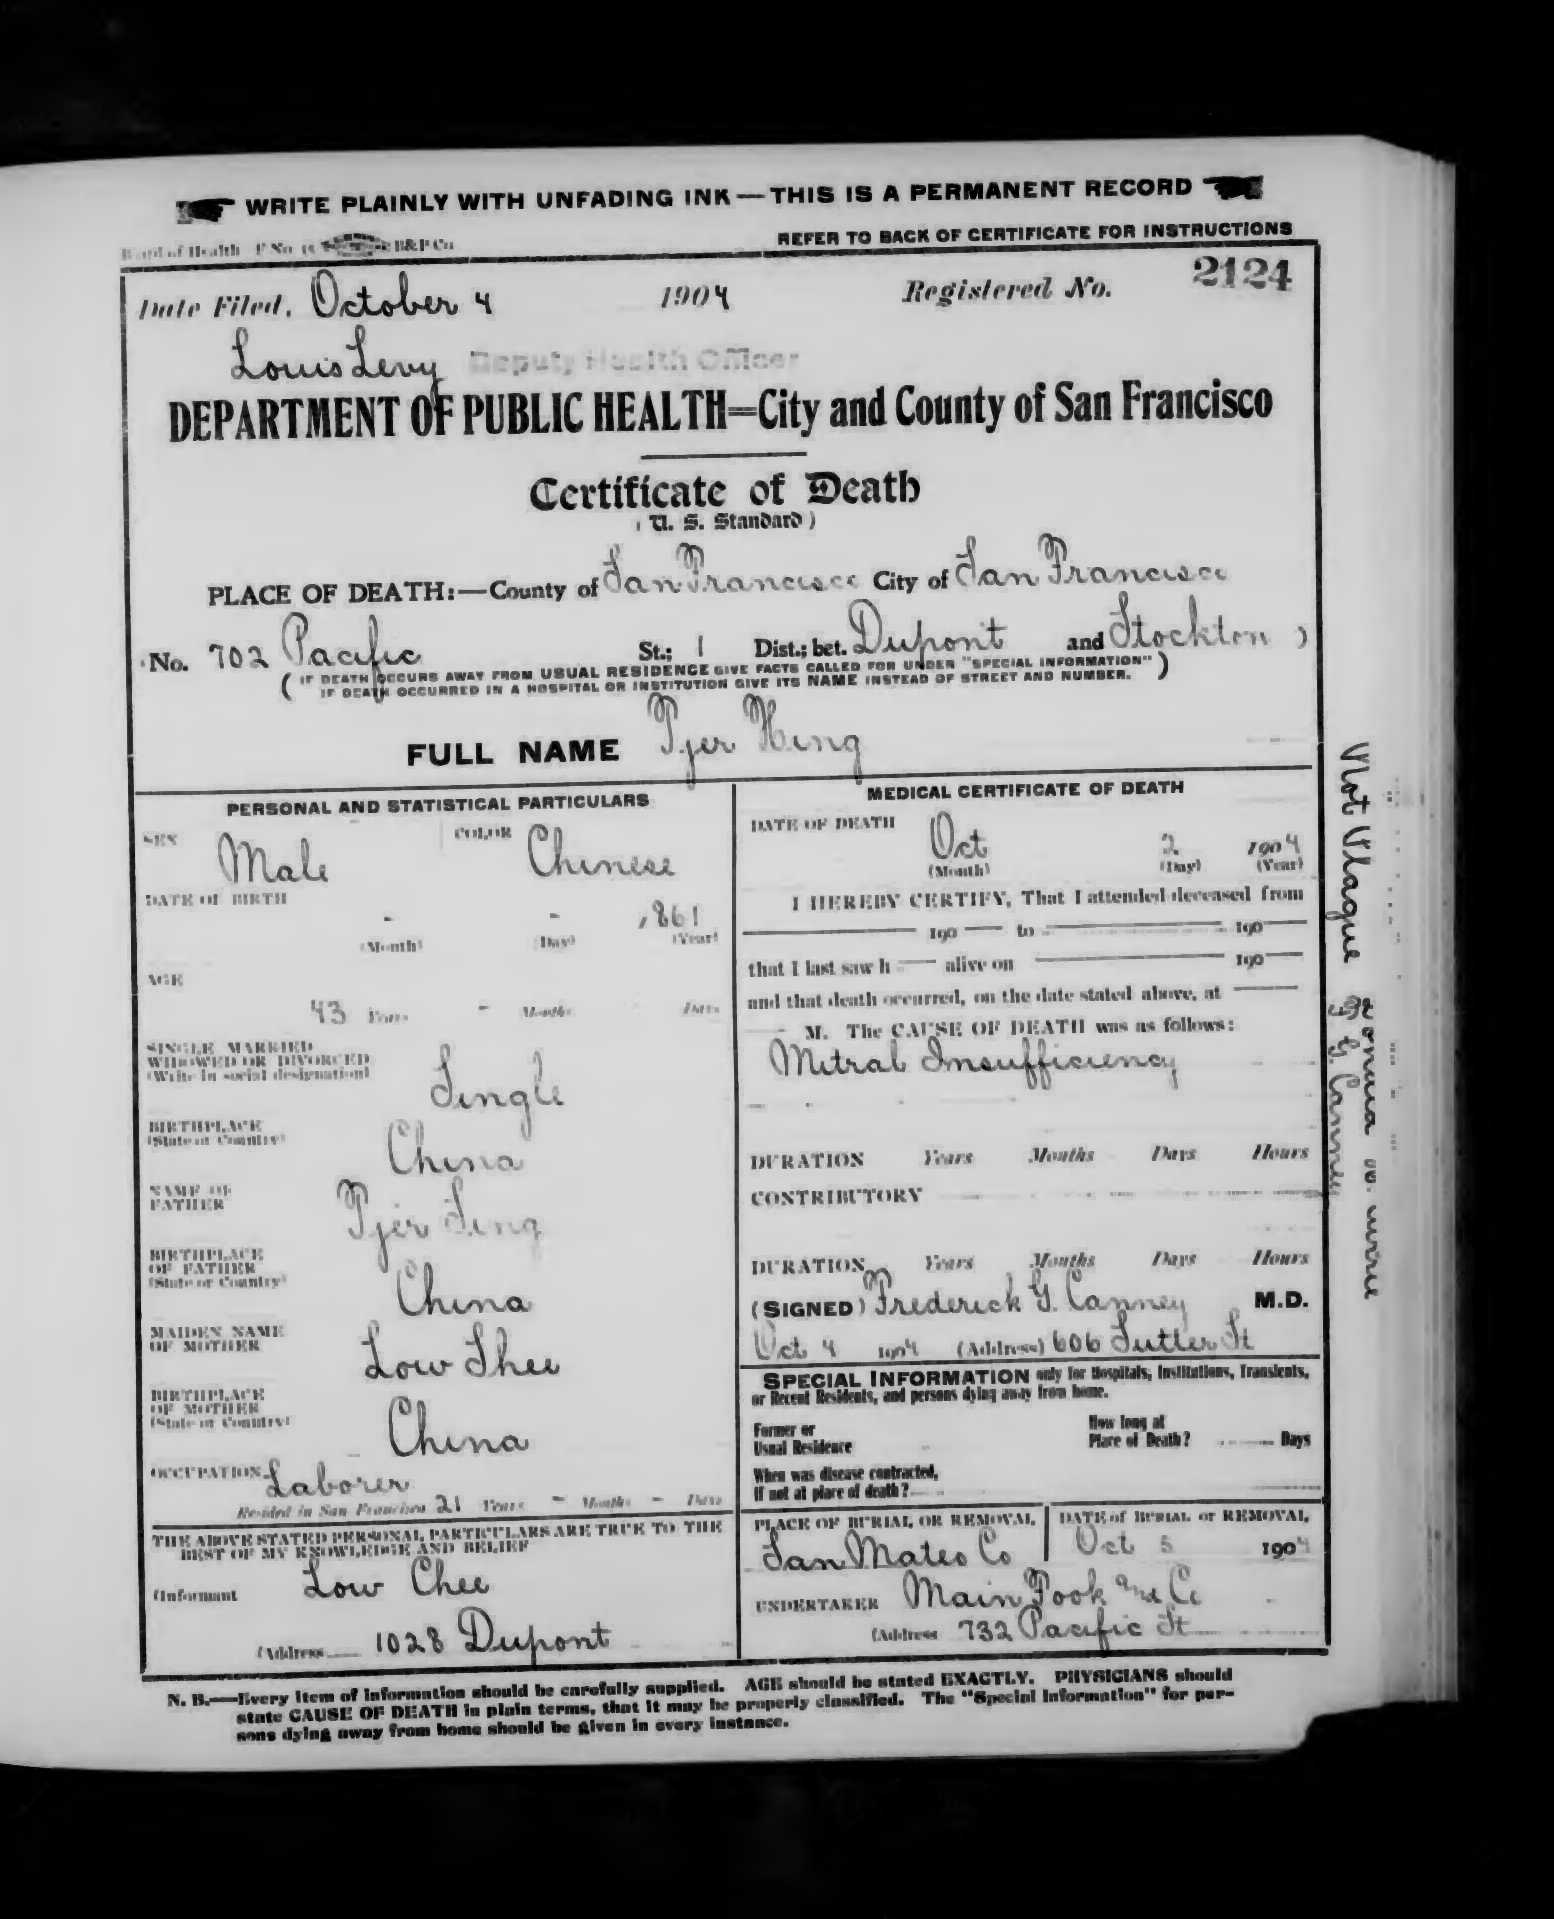 WRITE PLAINLY WITH UNFADING INK — THIS IS A PERMANENT RECORD
Board of Health B&P Co
REFER TO BACK OF CERTIFICATE FOR INSTRUCTIONS
Date Filed, October 4 1904 Registered No. 2124
Louis Levy Deputy Health Officer
DEPARTMENT OF PUBLIC HEALTH=City and County of San Francisco
Certificate of Death
(U. S. Standard)
PLACE OF DEATH:—County of San Francisco City of San Francisco
No. 702 Pacific St.; 1 Dist.; bet. Dupont and Stockton )
( IF DEATH OCCURS AWAY FROM USUAL RESIDENCE GIVE FACTS CALLED FOR UNDER "SPECIAL INFORMATION" )
IF DEATH OCCURRED IN A HOSPITAL OR INSTITUTION GIVE ITS NAME INSTEAD OF STREET AND NUMBER.
FULL NAME Tjer Hing
PERSONAL AND STATISTICAL PARTICULARS
SEX Male COLOR Chinese
DATE OF BIRTH
- - 1861
(Month) (Day) (Year)
AGE
43 Years - Months Days
SINGLE MARRIED
WIDOWED OR DIVORCED
(Write in social designation)
Single
BIRTHPLACE
(State or Country)
China
NAME OF
FATHER
Tjer Sing
BIRTHPLACE
OF FATHER
(State or Country)
China
MAIDEN NAME
OF MOTHER
Low Shee
BIRTHPLACE
OF MOTHER
(State or Country)
China
OCCUPATION Laborer
Resided in San Francisco 21 Years - Months - Days
THE ABOVE STATED PERSONAL PARTICULARS ARE TRUE TO THE
BEST OF MY KNOWLEDGE AND BELIEF
(Informant Low Chee
(Address 1028 Dupont
MEDICAL CERTIFICATE OF DEATH
DATE OF DEATH
Oct 2 1904
(Month) (Day) (Year)
I HEREBY CERTIFY, That I attended deceased from
190 to 190
that I last saw h alive on 190
and that death occurred, on the date stated above, at
M. The CAUSE OF DEATH was as follows:
Mitral Insufficiency
DURATION Years Months Days Hours
CONTRIBUTORY
DURATION Years Months Days Hours
(SIGNED) Frederick G. Canney M.D.
Oct 4 1904 (Address) 606 Sutter St
SPECIAL INFORMATION only for Hospitals, Institutions, Transients,
or Recent Residents, and persons dying away from home.
Former or
Usual Residence
How long at
Place of Death? Days
When was disease contracted,
If not at place of death?
PLACE OF BURIAL OR REMOVAL
San Mateo Co
DATE of BURIAL or REMOVAL
Oct 5 1904
UNDERTAKER Main Fook and Co
(Address 732 Pacific St
N. B.—Every item of information should be carefully supplied. AGE should be stated EXACTLY. PHYSICIANS should
state CAUSE OF DEATH in plain terms, that it may be properly classified. The "Special Information" for per-
sons dying away from home should be given in every instance.
Not Plague Donald H. Currie
F G. Canney